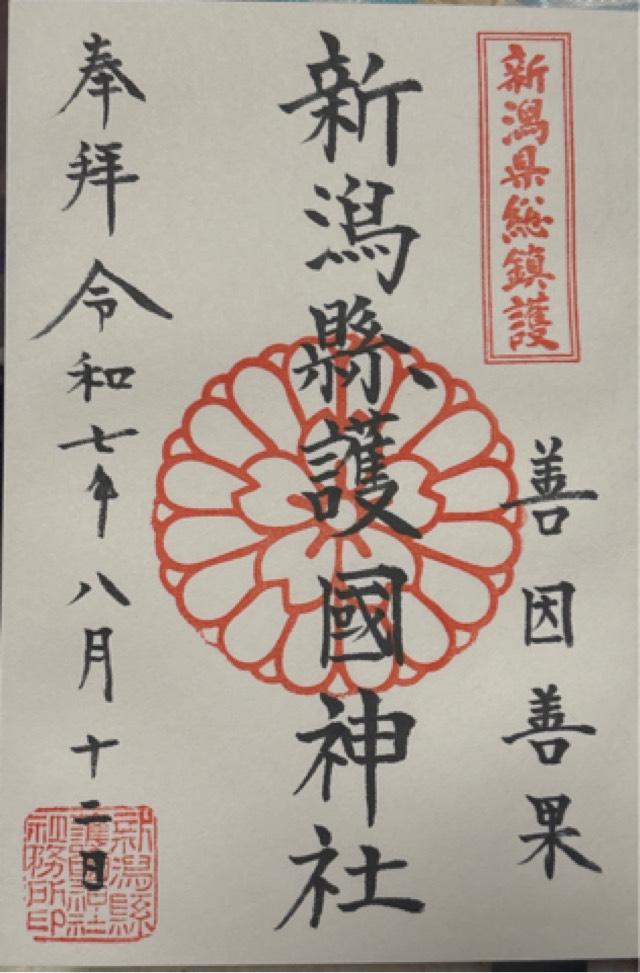 新潟県総鎮護
善因善果
新潟縣護國神社
奉拝 令和七年八月十二日
新潟縣
護国神社
社務所印